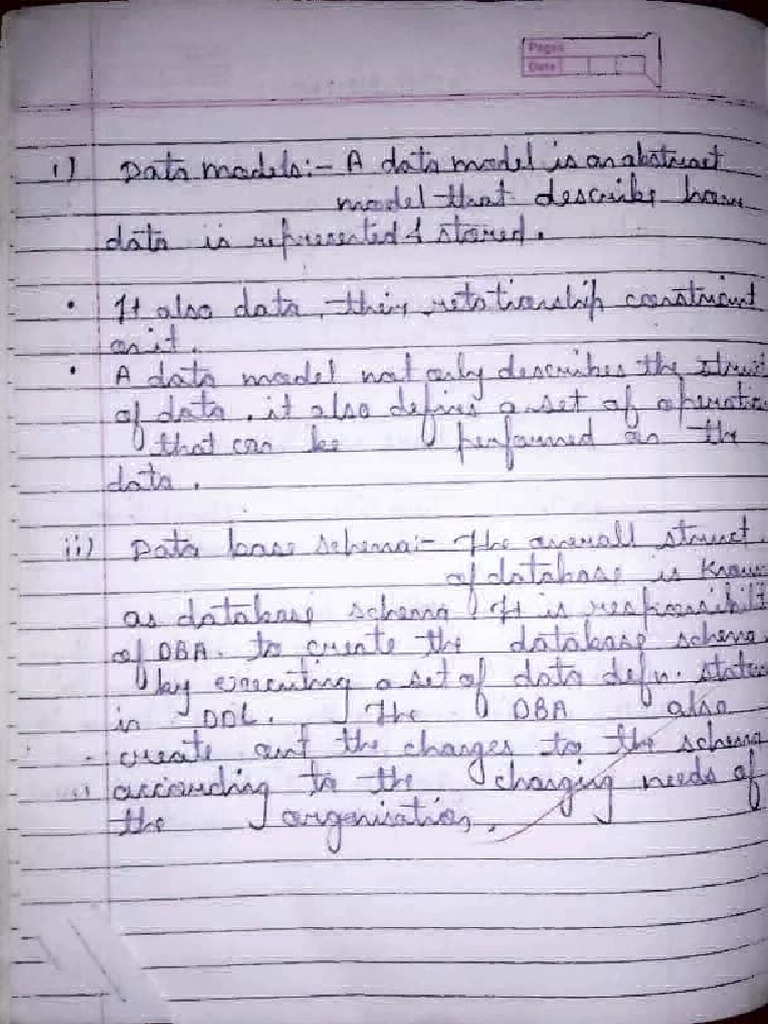 Page:
Date
i) Data models:- A data model is an abstract
model that describe how
data is represented & stored.
• It also data, their relationship constraint
on it.
• A data model not only describes the struct
of data, it also defins a set of operatio
that can be performed on the
data.
ii) Data base schema:- The overall struct.
of database is known
as database schema It is responsibili
of DBA. to create the database schema
by executing a set of data defn. state
in DDL. The DBA also
create out the changes to the schema
according to the changing needs of
the organisation.